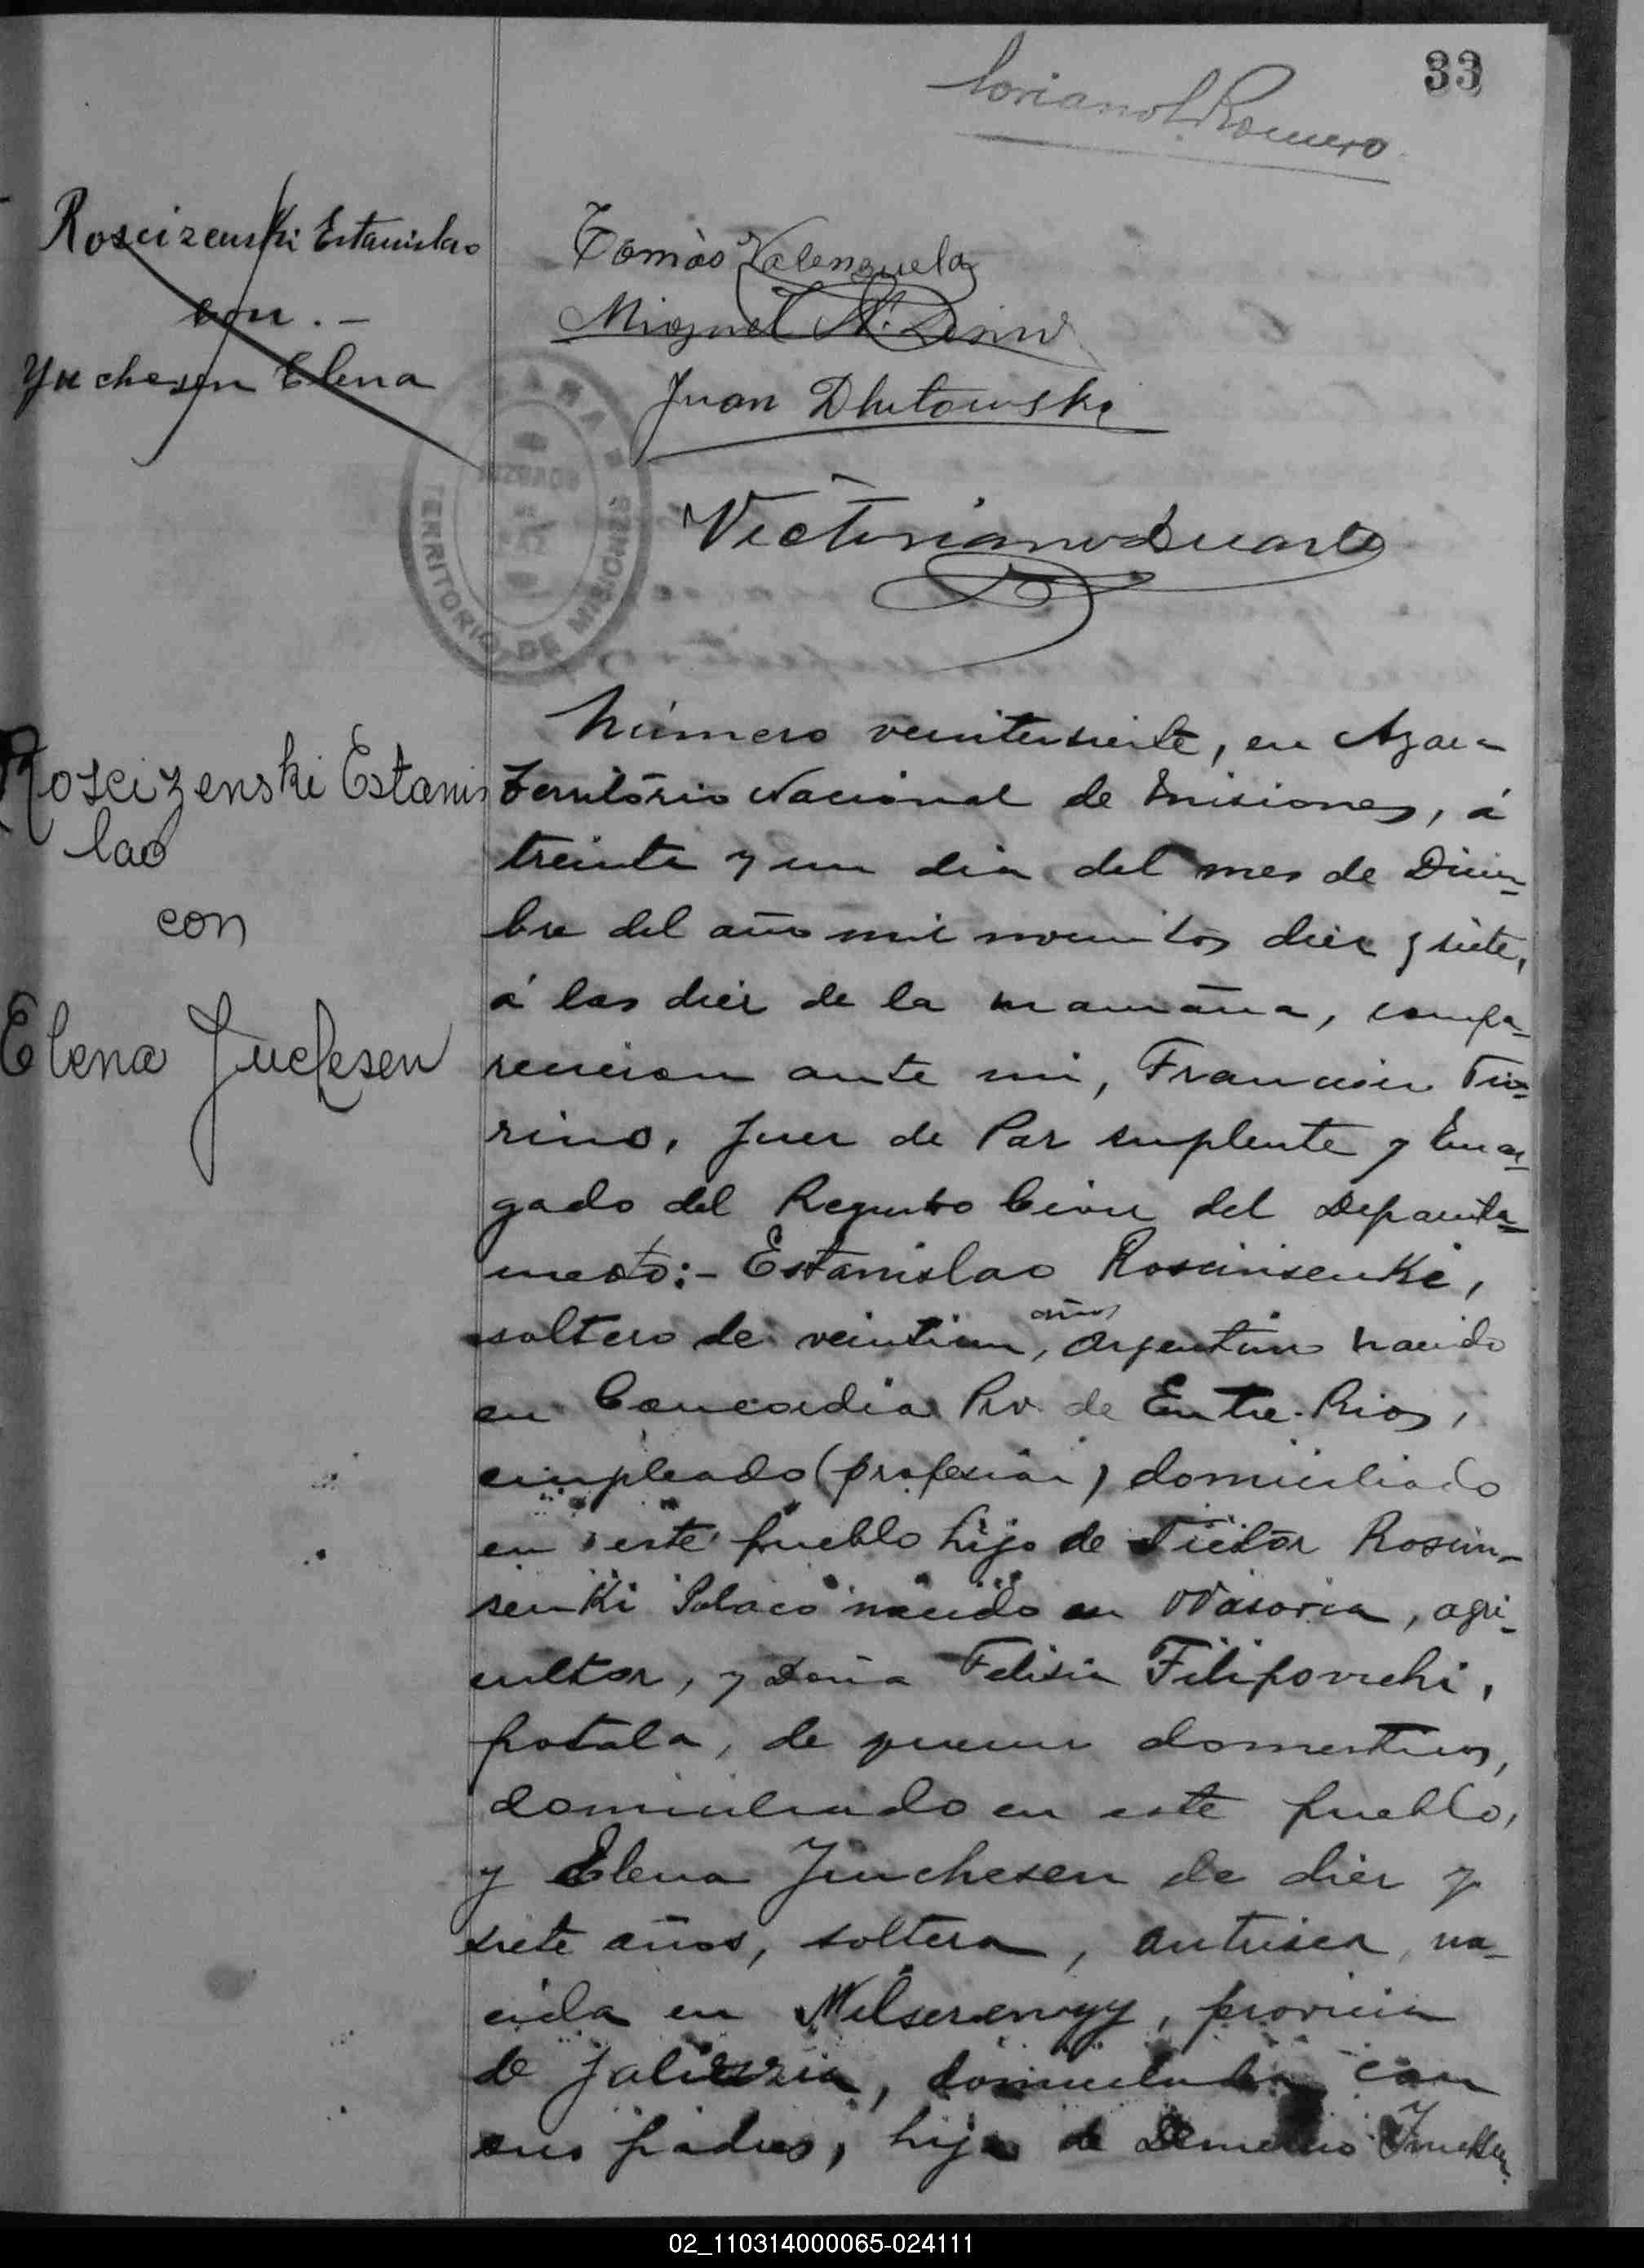 33
Romero
Roscizenski Estanislao
con.-
Yuchesen Elena
Tomás Valenzuela
Miguel A.
Juan Dlutowski
Victoriano Duarte
TERRITORIO DE MISIONES
Roscizenski Estanis
lao
con
Elena Jucksen
Número veintisiete, en Azara
Territorio Nacional de Misiones, á
treinta y un dia del mes de Diciem-
bre del año mil novecientos diez y siete,
á las diez de la mañana, compa-
recieron ante mi, Francisco
rino, Juez de Paz suplente y Encar-
gado del Registro Civil del Departa-
mento:- Estanislao Roscinsenki,
soltero de veintiun, años Argentino nacido
en Concordia Prv. de Entre-Rios,
empleado (profesion) domiciliado
en este pueblo hijo de Victor Roscin-
senki Polaco nacido en Vasovia, agri-
cultor, y Doña Felisia Filipovichi,
polala, de quehaceres domesticos,
domiciliado en este pueblo,
y Elena Juchesen de diez y
siete años, soltera, autrisca, na-
cida en Milserenvyy, provincia
de Jalitzzia, domiciliada con
sus padres, hija de Demetrio
02_110314000065-024111